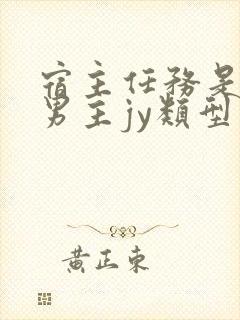 宿主任務是
男主jy類型
黃正東